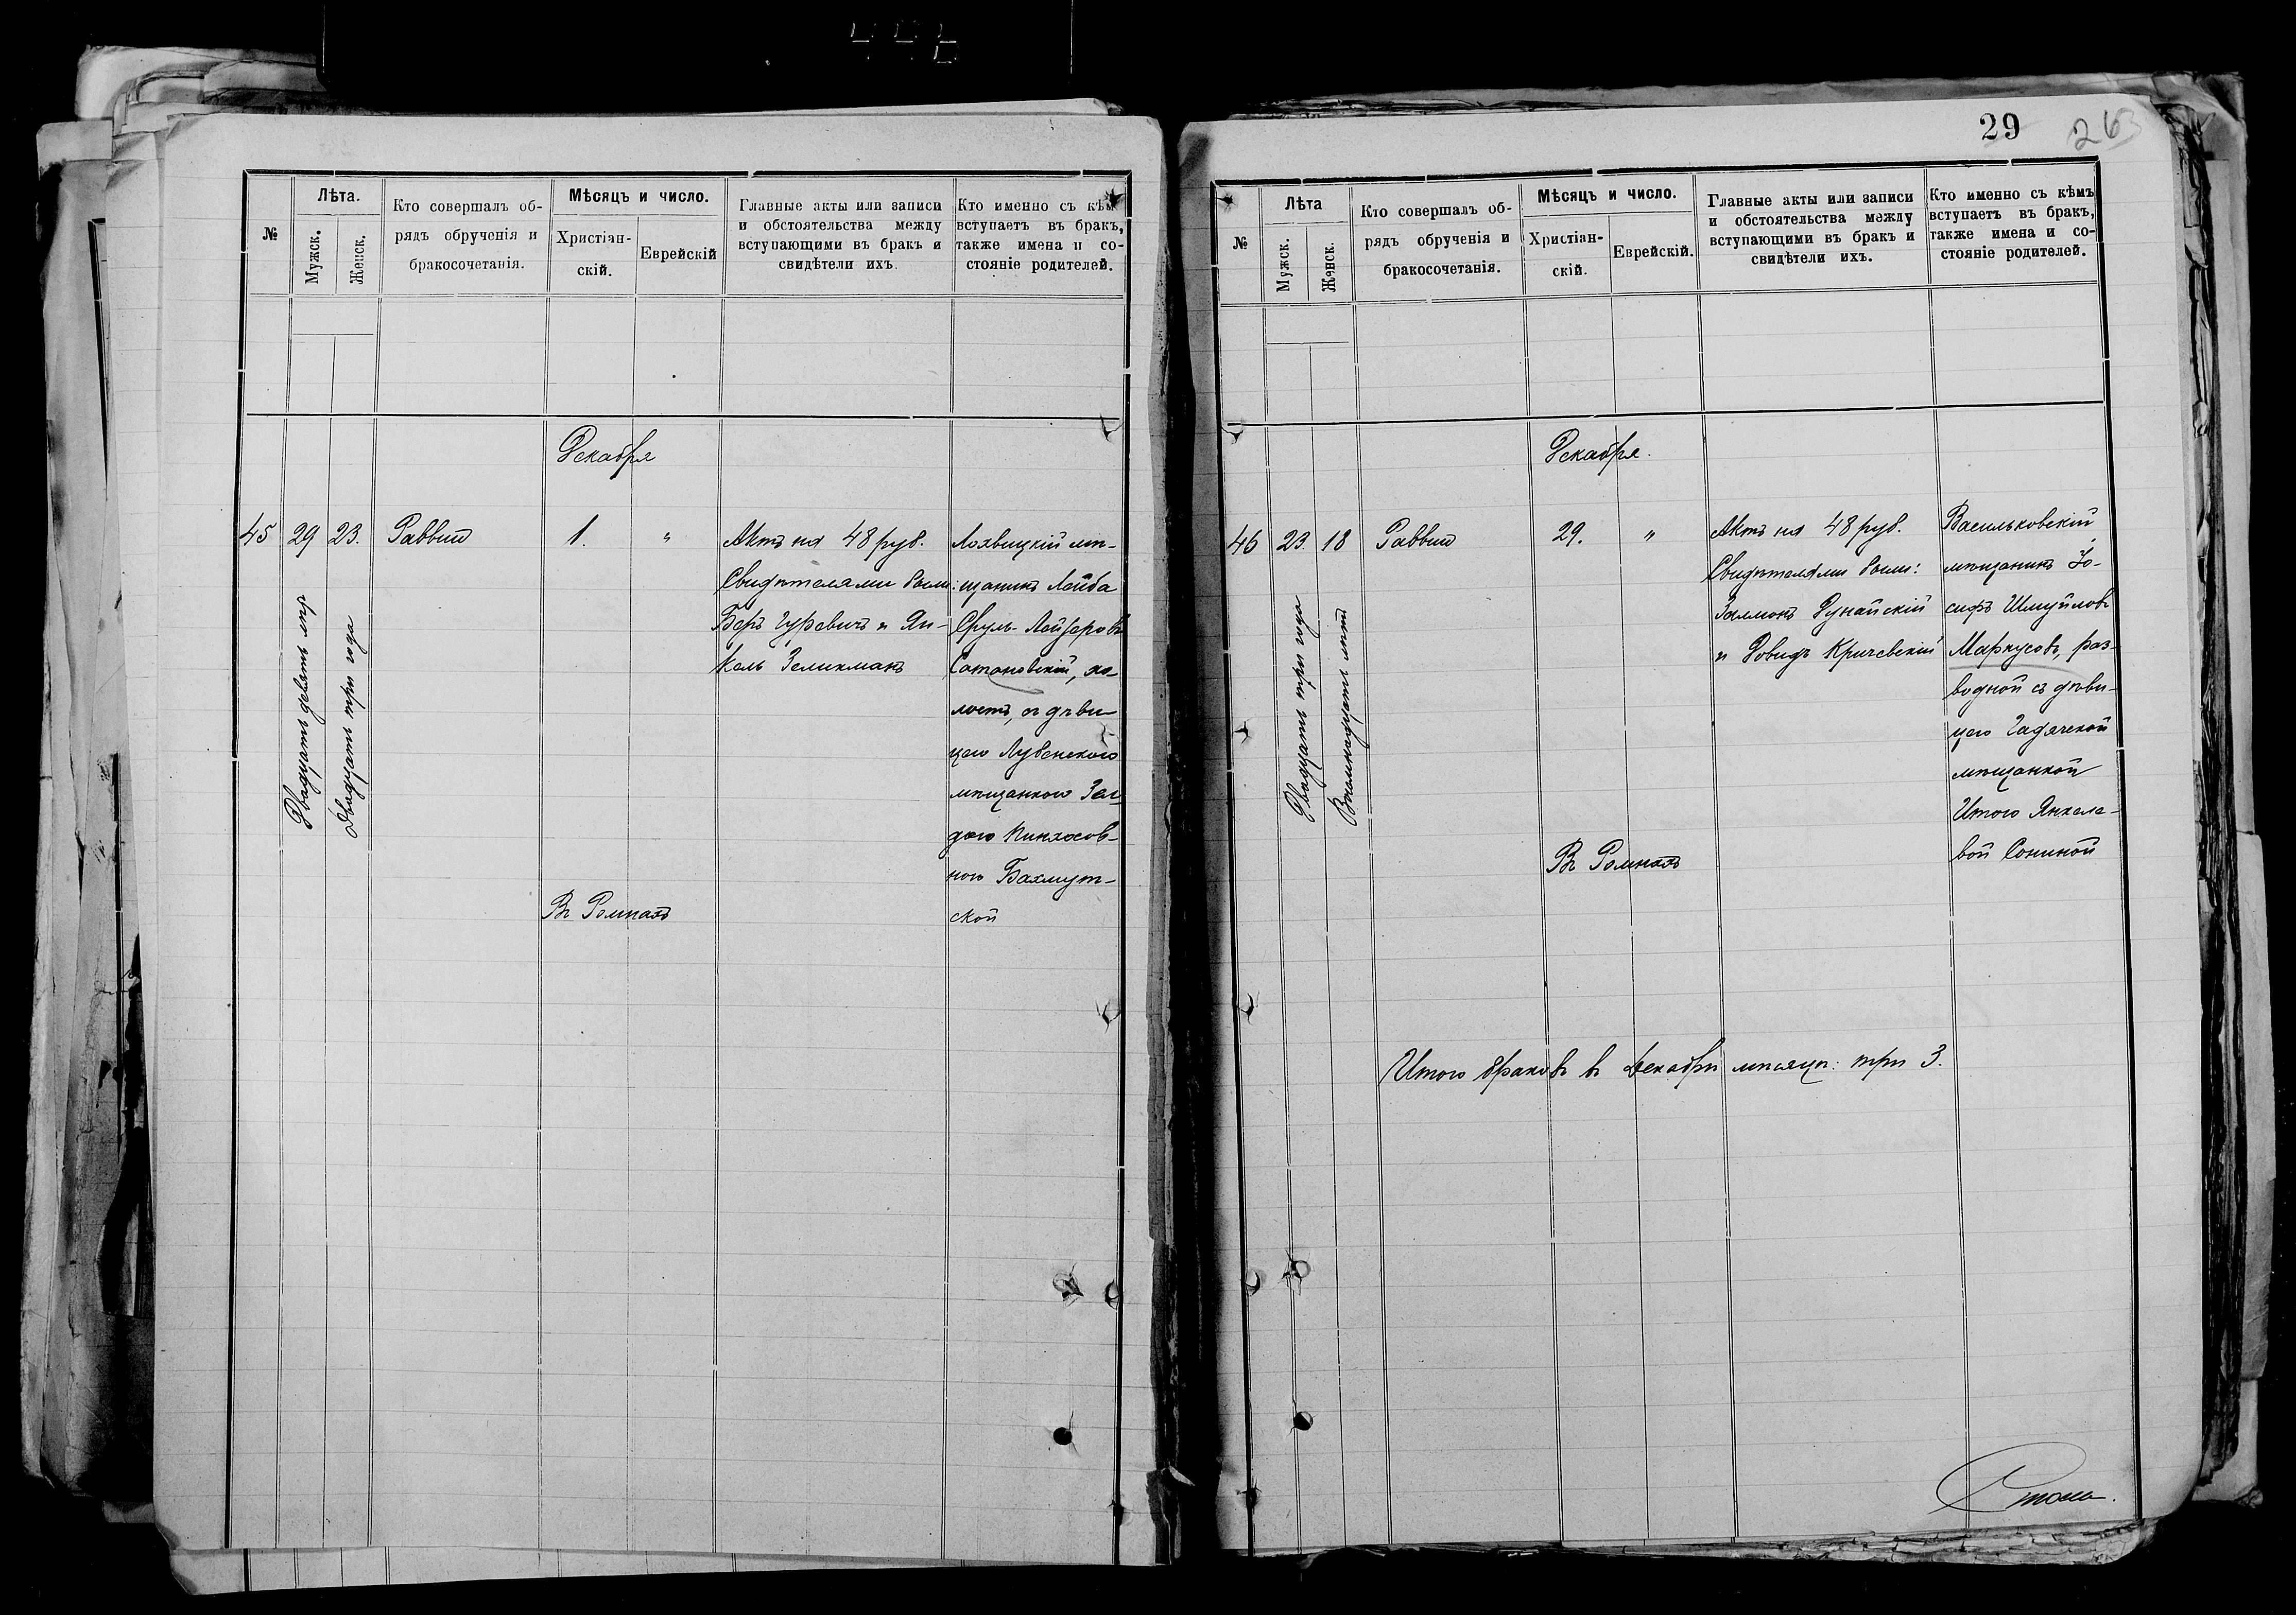 №
Лѣта.
Мужск.
Женск.
Кто совершалъ об-
рядъ обрученія и
бракосочетанія.
Мѣсяцъ и число.
Христіан-
скій.
Еврейскій
Главные акты или записи
и обстоятельства между
вступающими въ бракъ и
свидѣтели ихъ.
Кто именно съ кѣмъ
вступаетъ въ бракъ,
также имена и со-
стояніе родителей.
Декабря
45
29
23.
Двадцать девять лѣтъ
Двадцать три года
Раввинъ
1.
"
Въ Ромнахъ
Актъ на 48 руб.
Свидѣтелями были:
Беръ Гуревичъ и Ян-
кель Зеликманъ
Лохвицкій мѣ-
щанинъ Лейба
Сруль-Лейзеровъ
Сатановскій, хо-
лостъ, съ дѣви-
цею Лубенскою
мѣщанкою Зел-
дою Пинхосов-
ною Бахмут-
ской
29
263
№
Лѣта
Мужск.
Женск.
Кто совершалъ об-
рядъ обрученія и
бракосочетанія.
Мѣсяцъ и число.
Христіан-
скій.
Еврейскій.
Главные акты или записи
и обстоятельства между
вступающими въ бракъ и
свидѣтели ихъ.
Кто именно съ кѣмъ
вступаетъ въ бракъ,
также имена и со-
стояніе родителей.
Декабря.
46
23.
18
Двадцать три года
Восемнадцать лѣтъ
Раввинъ
29.
"
Въ Ромнахъ
Актъ на 48 руб.
Свидѣтелями были:
Залмонъ Дунайскій
и Довидъ Кричевскій
Васильковскій
мѣщанинъ Іо-
сифъ Шмуйловъ
Маркусовъ, раз-
водной съ дѣви-
цею Гадячской
мѣщанкой
Итою Янкеле-
вой Сониной
Итого браковъ въ Декабрѣ мѣсяцѣ: три 3.